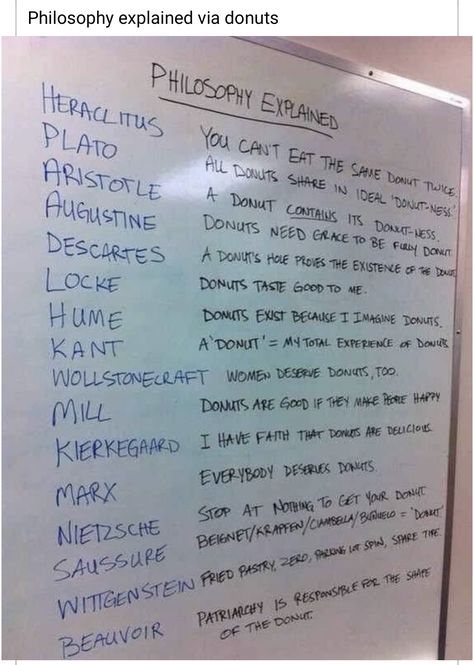 Philosophy explained via donuts
PHILOSOPHY EXPLAINED
HERACLITUS YOU CAN'T EAT THE SAME DONUT TWICE.
PLATO ALL DONUTS SHARE IN IDEAL 'DONUT-NESS.'
ARISTOTLE A DONUT CONTAINS ITS DONUT-NESS.
AUGUSTINE DONUTS NEED GRACE TO BE FULLY DONUT
DESCARTES A DONUT'S HOLE PROVES THE EXISTENCE OF THE DONUT
LOCKE DONUTS TASTE GOOD TO ME.
HUME DONUTS EXIST BECAUSE I IMAGINE DONUTS.
KANT A 'DONUT' = MY TOTAL EXPERIENCE OF DONUTS
WOLLSTONECRAFT WOMEN DESERVE DONUTS, TOO.
MILL DONUTS ARE GOOD IF THEY MAKE PEOPLE HAPPY
KIERKEGAARD I HAVE FAITH THAT DONUTS ARE DELICIOUS.
MARX EVERYBODY DESERVES DONUTS.
NIETZSCHE STOP AT NOTHING TO GET YOUR DONUT
SAUSSURE BEIGNET/KRAPFEN/CIAMBELLA/BUÑUELO = 'DONUT'
WITTGENSTEIN FRIED PASTRY, ZERO, PARKING LOT SPIN, SPARE TIRE.
BEAUVOIR PATRIARCHY IS RESPONSIBLE FOR THE SHAPE
OF THE DONUT.